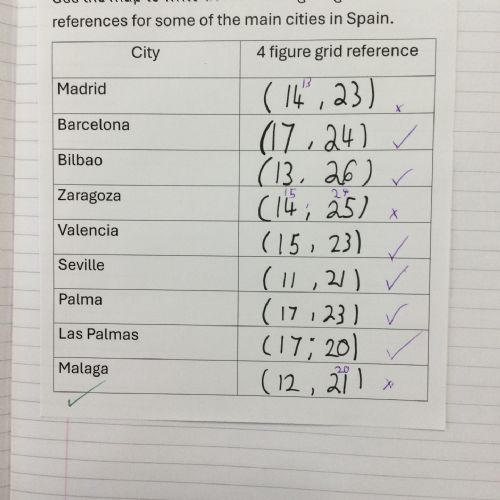 references for some of the main cities in Spain.
City 4 figure grid reference
Madrid (14 13, 23) x
Barcelona (17, 24) ✓
Bilbao (13, 26) ✓
Zaragoza (14 15, 25 24) x
Valencia (15, 23) ✓
Seville (11, 21) ✓
Palma (17, 23) ✓
Las Palmas (17, 20) ✓
Malaga (12, 21 20) x
✓